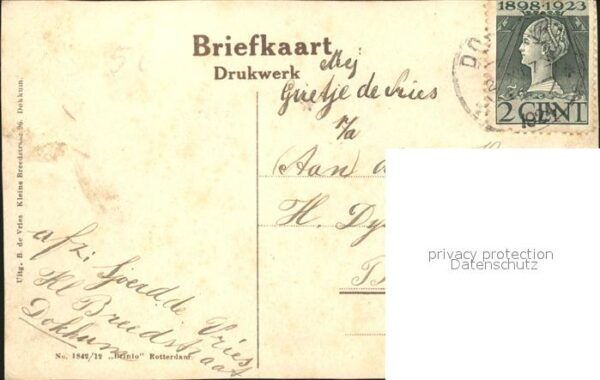 1898·1923
Briefkaart
Drukwerk
Mej
Grietje de Vries
p/a
2 CENT
Aan
H. Dy
afz: Sjoerd de Vries
Kl Breedstraat
Dokkum
Uitg. B. de Vries Kleine Breedstraat 96. Dokkum.
No. 1842/12 „Brinio" Rotterdam
privacy protection
Datenschutz